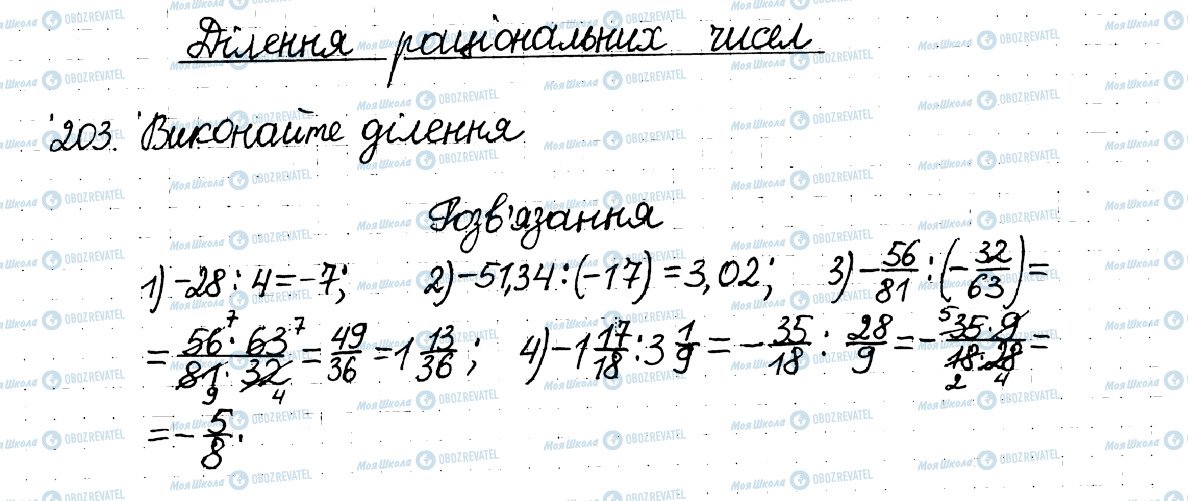 Ділення раціональних чисел
203. Виконайте ділення
Розв'язання
1) -28 : 4 = -7; 2) -51,34 : (-17) = 3,02; 3) -56/81 : (-32/63) =
= 56 · 63 / 81 · 32 = 49/36 = 1 13/36; 4) -1 17/18 : 3 1/9 = -35/18 : 28/9 = -35 · 9 / 18 · 28 =
= -5/8.